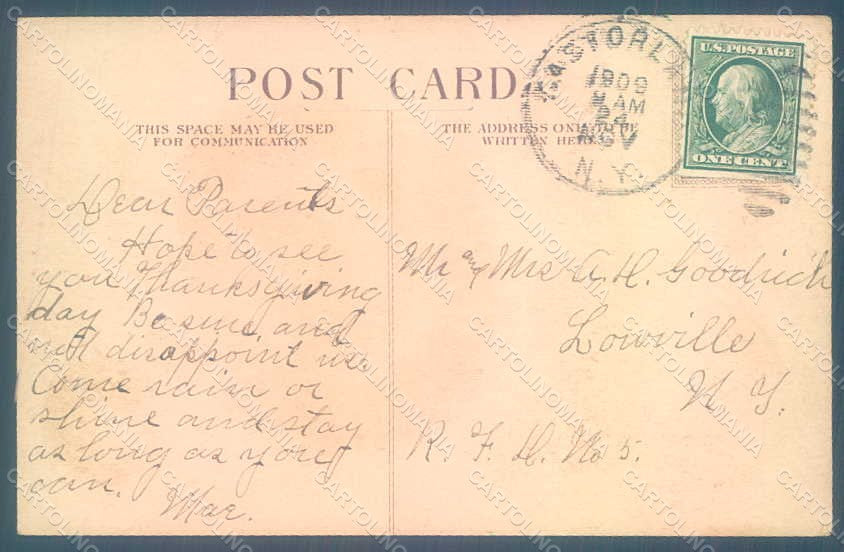 POST CARD
THIS SPACE MAY BE USED
FOR COMMUNICATION
THE ADDRESS ONLY TO BE
WRITTEN HERE
CASTORLAND
1909
AM
24
NOV
N.Y.
U.S. POSTAGE
ONE CENT
Dear Parents
Hope to see
you Thanksgiving
day Be sure and
not disappoint us.
Come rain or
shine and stay
as long as you
can.
Mae.
Mr and Mrs A. H. Goodrich
Lowville
N. Y.
R. F. D. No 5.
CARTOLINOMANIA